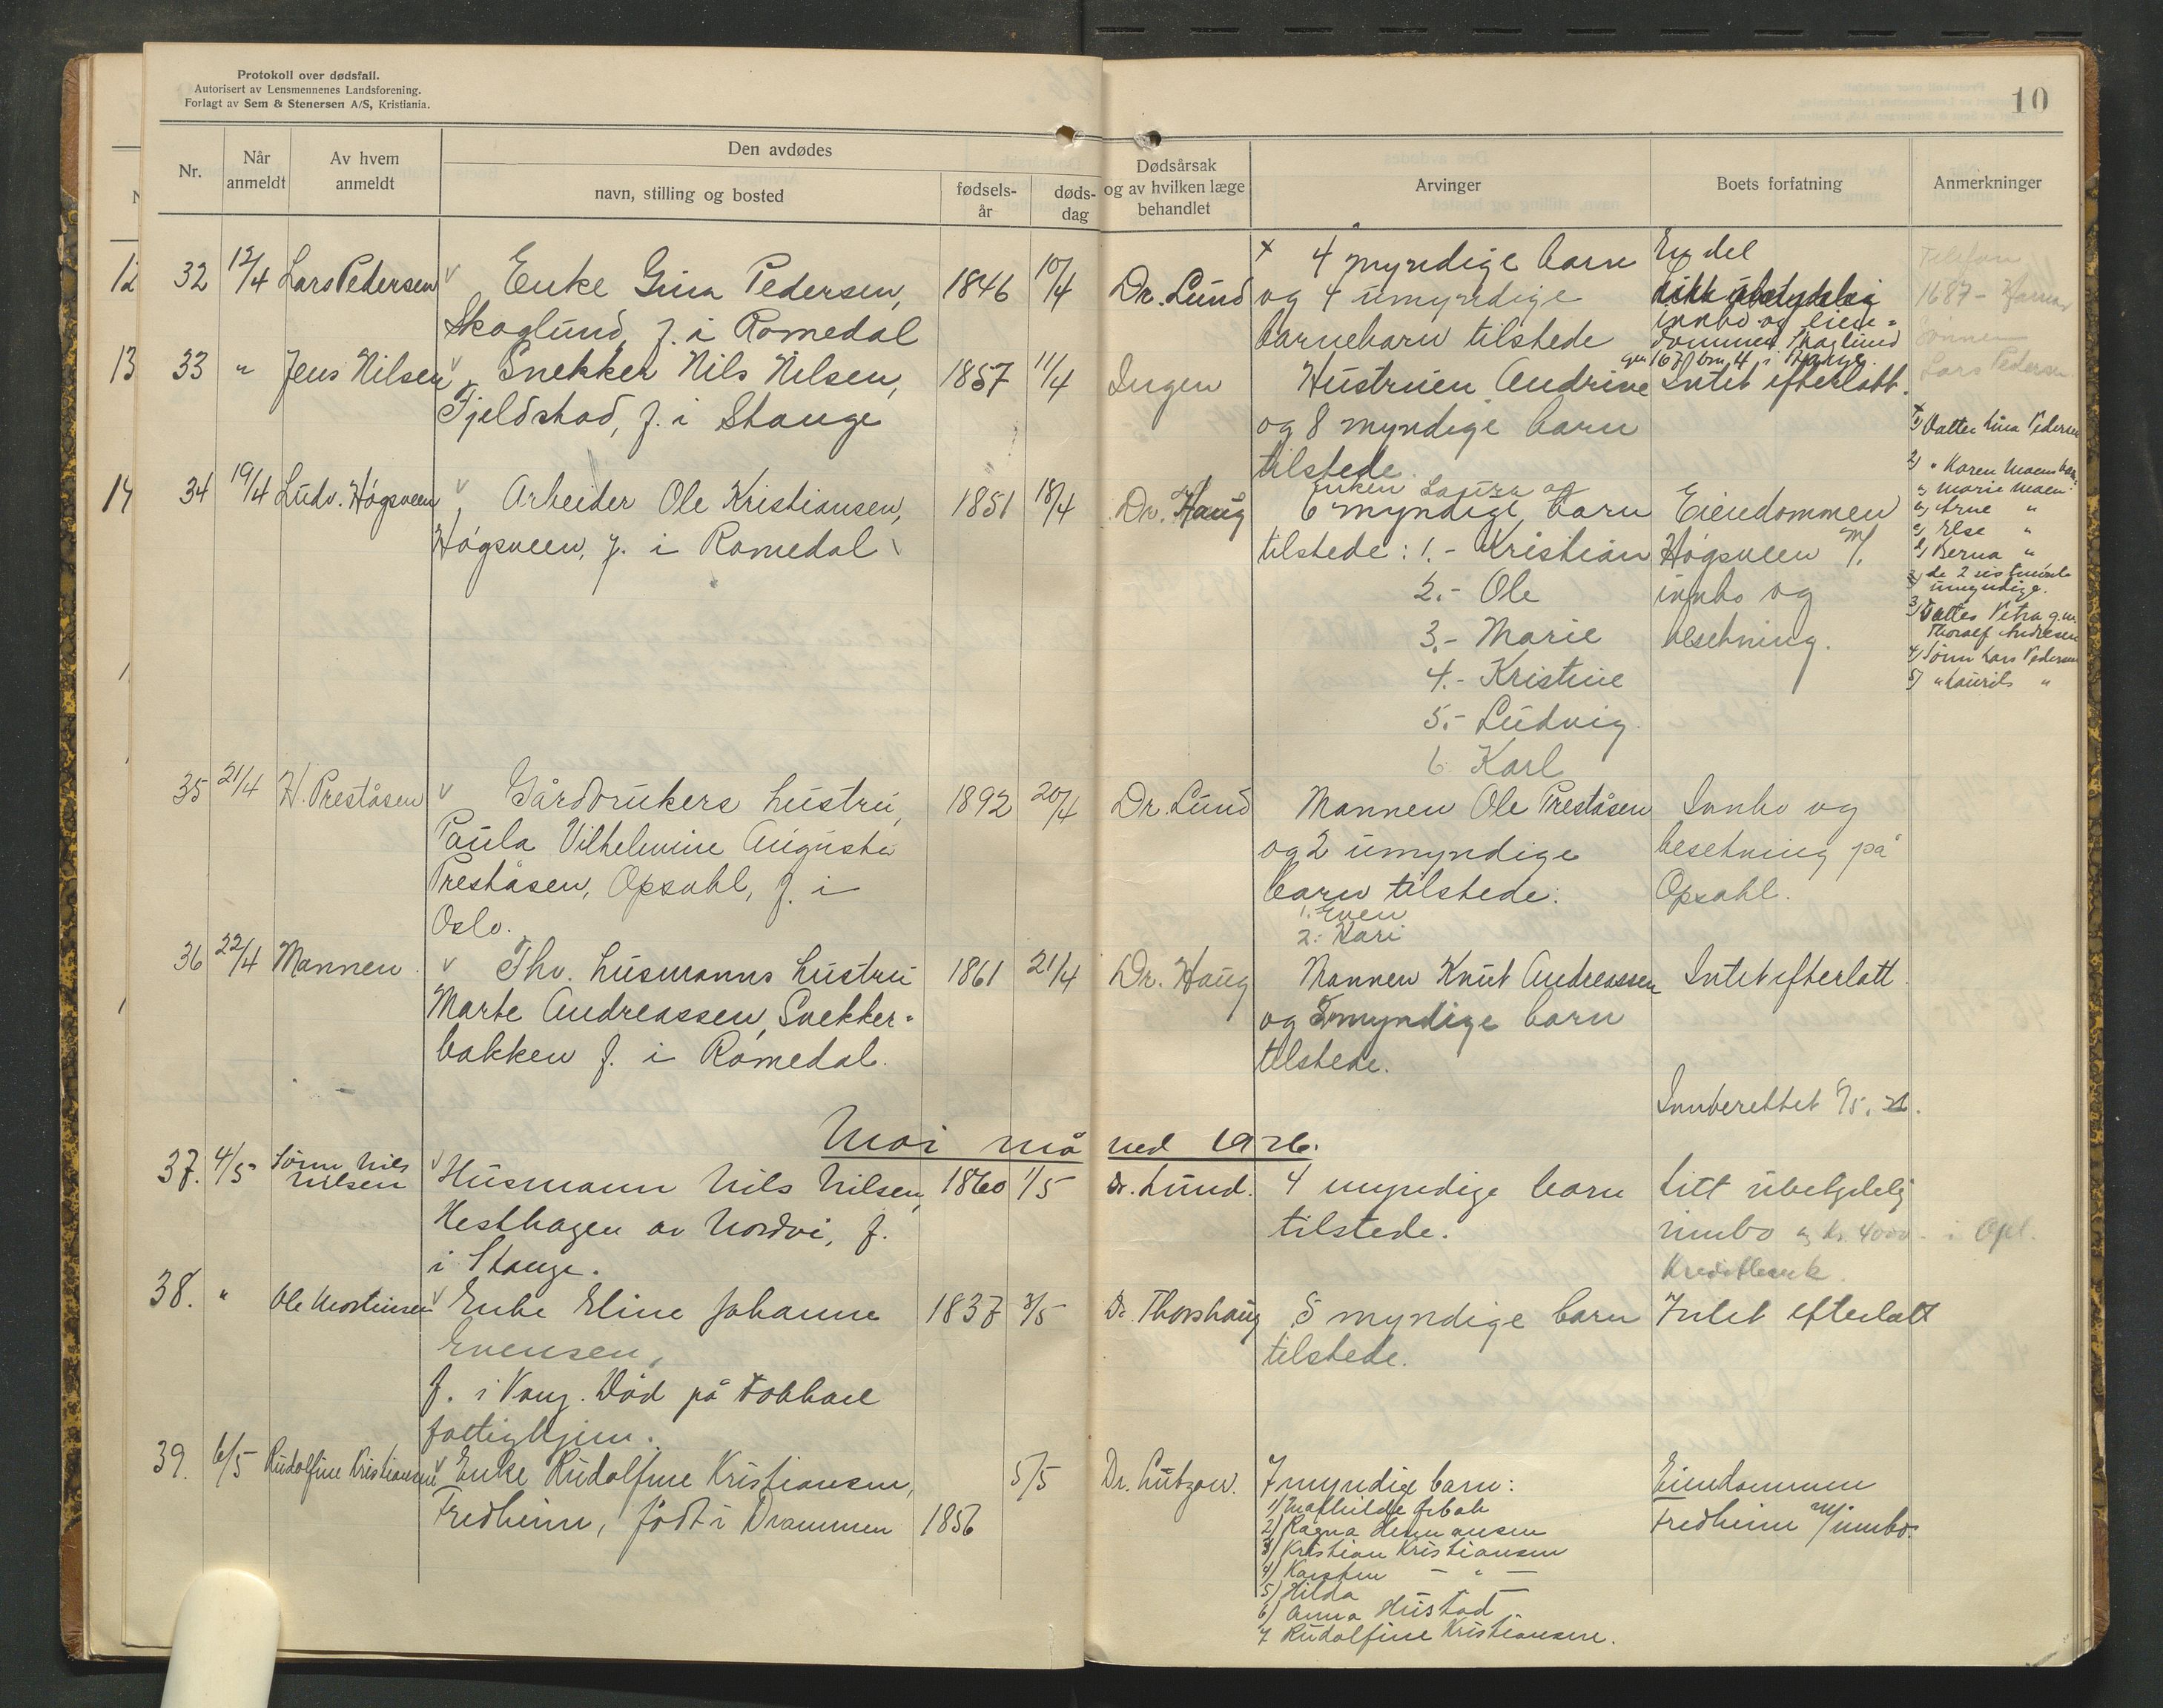 Protokoll over dødsfall.
Autorisert av Lensmennenes Landsforening.
Forlagt av Sem & Stenersen A/S, Kristiania.
10
Nr.
Når anmeldt
Av hvem anmeldt
Den avdødes
navn, stilling og bosted
fødsels-år
døds-dag
Dødsårsak og av hvilken læge behandlet
Arvinger
Boets forfatning
Anmerkninger
12 32 12/4 Lars Pedersen v Enke Gina Pedersen, 1846 10/4 Dr. Lund x 4 myndige barn En del
Skoglund, f. i Romedal og 4 umyndige
barnebarn tilstede
innbo og eien-
dommen Skoglund
gn 167 bn. 4 i Stange.
Telefon
1687 - Hamar
Sønnen
Lars Pedersen
13 33 " Jens Nilsen v Snekker Nils Nilsen, 1857 11/4 Ingen Hustruen Andrine Intet efterlatt.
Fjeldstad, f. i Stange og 8 myndige barn
tilstede.
x
1) Datter Lina Pedersen
2) " Karen Moens barn:
a) Marie Moen
b) Arne "
c) Else "
d) Berna "
de 2 sistnevnte
umyndige.
3) Datter Petra g.m.
Thoralf Andresen
4) Sønn Lars Pedersen
5) " Laurits "
14 34 19/4 Ludv. Høgsveen v Arbeider Ole Kristiansen, 1851 18/4 Dr. Haug Enken Laura og
6 myndige barn Eiendommen
Høgsveen, f. i Romedal tilstede: 1.- Kristian Høgsveen m/
2.- Ole innbo og
3.- Marie besetning.
4.- Kristine
5.- Ludvig
6. Karl
35 21/4 H. Preståsen v Gårdbrukers hustru, 1892 20/4 Dr. Lund Mannen Ole Preståsen Innbo og
Paula Vilhelmine Augusta og 2 umyndige besetning på
Preståsen, Opsahl, f. i barn tilstede: Opsahl.
Oslo. 1. Even
2.- Kari
36 22/4 Mannen v Fhv. husmanns hustru 1861 21/4 Dr. Haug Mannen Knut Andreassen Intet efterlatt.
Marte Andreassen, Snekker-
bakken f. i Romedal. tilstede.
og myndige barn
Innberettet 6/5. 26.
Mai måned 1926.
37. 4/5 Sønn Nils Nilsen v Husmann Nils Nilsen, 1860 1/5 Dr. Lund. 4 myndige barn Litt ubetydelig
Hesthagen av Nordvi, f. tilstede. innbo og kr. 4000.- i Opl.
i Stange. Kreditbank.
38. " Ole Mortinsen v Enke Eline Johanne 1837 3/5 Dr Thorshaug 5 myndige barn Intet efterlatt
Evensen, tilstede.
f. i Vang. Død på
fattighjem.
39. 6/5 Rudolfine Kristiansen v Enke Rudolfine Kristiansen, 5/5 Dr. Lutzow. 7 myndige barn: Eiendommen
Fredheim, født i Drammen 1856 Fredheim m/ innbo.
1) Mathilde
2) Ragna Hermansen
3) Kristian Kristiansen
4) Karsten — " —
5) Hilda —
6) Anna Hustad
7 Rudolfine Kristiansen.